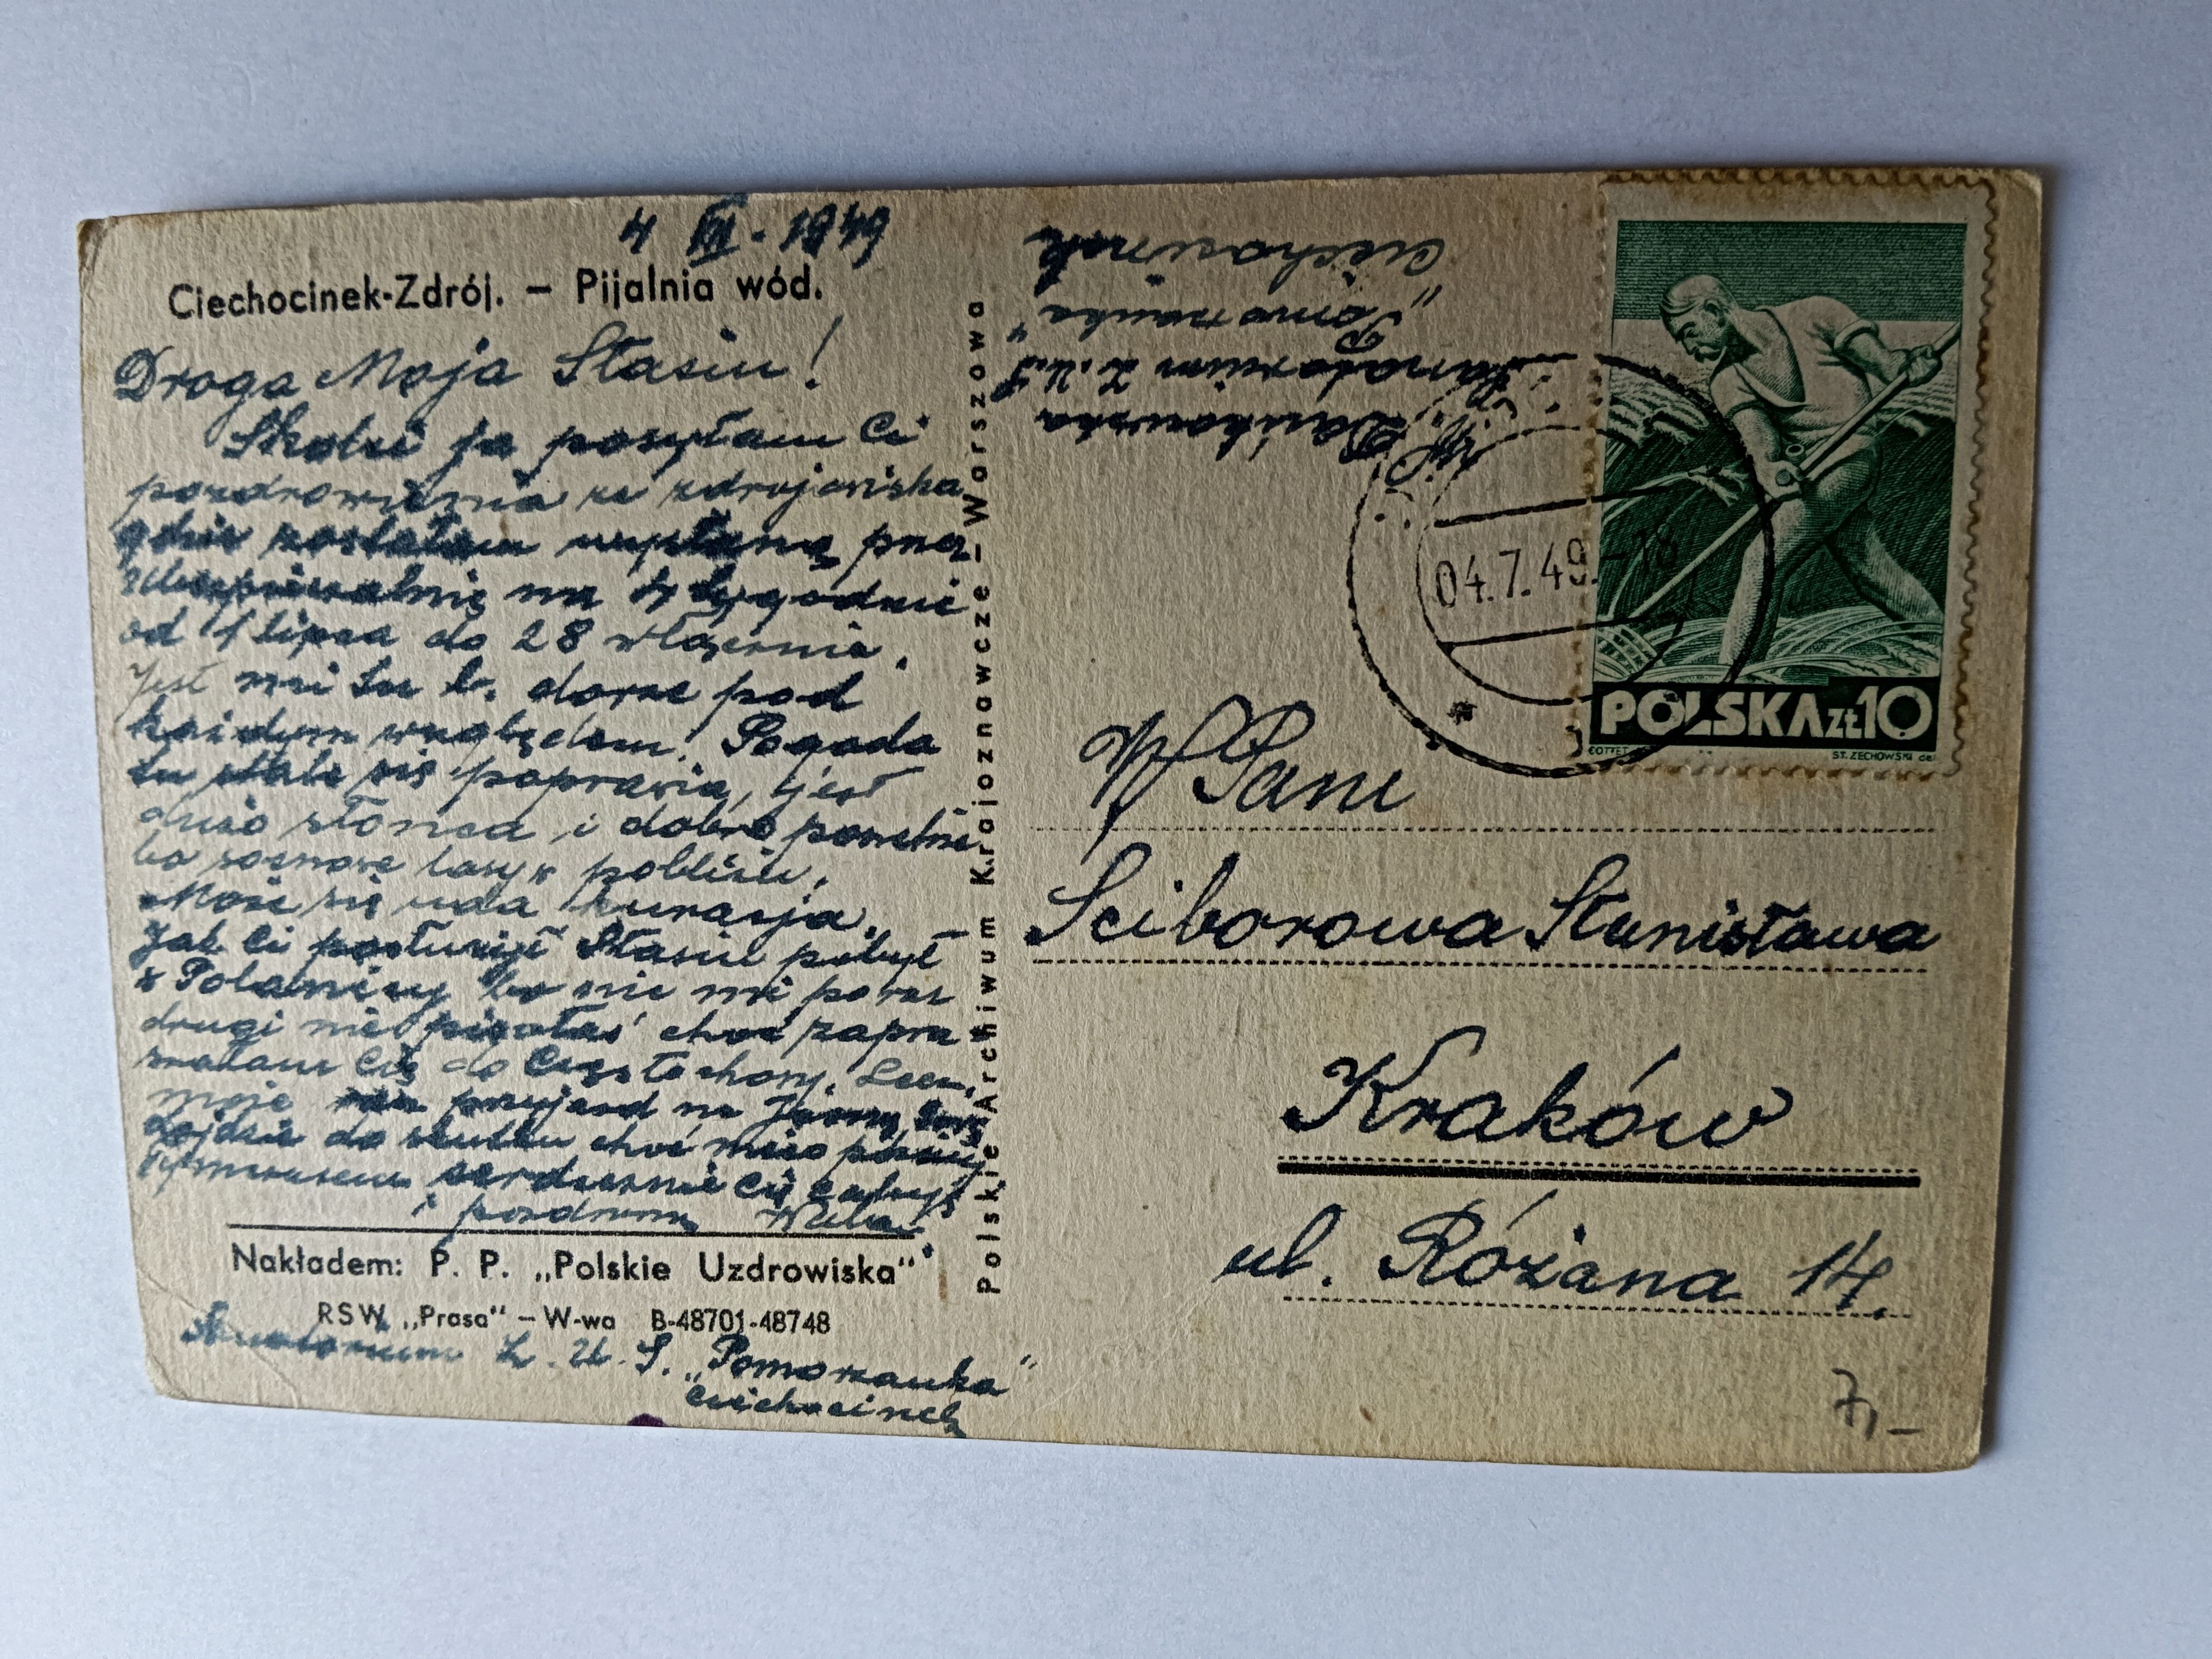 4 VII - 1949
Ciechocinek-Zdrój. – Pijalnia wód.
Droga Moja Stasiu!
ja posyłam Ci
pozdrowienia ze zdrojowiska
gdzie zostałam wysłaną prez
Ubezpieczalnię na 4 tygodnie
od 1 lipca do 28 włącznie.
Jest mi tu b. dobrze pod
każdym względem. Pogoda
tu stale się poprawia, jest
dużo słońca i dobre powietrze
bo sosnowe lasy w pobliżu.
Może się uda kuracja.
Jak Ci posłużył Stasiu pobyt
w Polanicy bo nic mi poraz
drugi nie pisałaś choć zapra
szałam Cię do Częstochowy. Lecz
moje przyjazd na Jasną Górę
dojdzie do skutku choć nieco później
Tymczasem serdecznie Cię całuję
i pozdrawiam
Nakładem: P. P. „Polskie Uzdrowiska”
RSW „Prasa” – W-wa B-48701-48748
Sanatorium Z.U.S. „Pomorzanka”
Ciechocinek
Polskie Archiwum Krajoznawcze – Warszawa
W. Dańkowska
Sanatorium Z.U.S
„Pomorzanka”
Ciechocinek
04.7.49.-18
POLSKA ZŁ 10
COTTET
ST. ZECHOWSKI del
W Pani
Sciborowa Stanisława
Kraków
ul. Różana 14.
7,-